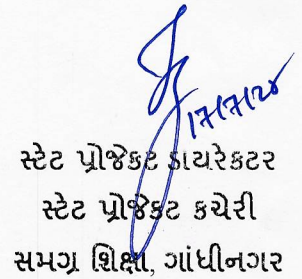 17/7/24
સ્ટેટ પ્રોજેક્ટ ડાયરેક્ટર
સ્ટેટ પ્રોજેક્ટ કચેરી
સમગ્ર શિક્ષા, ગાંધીનગર